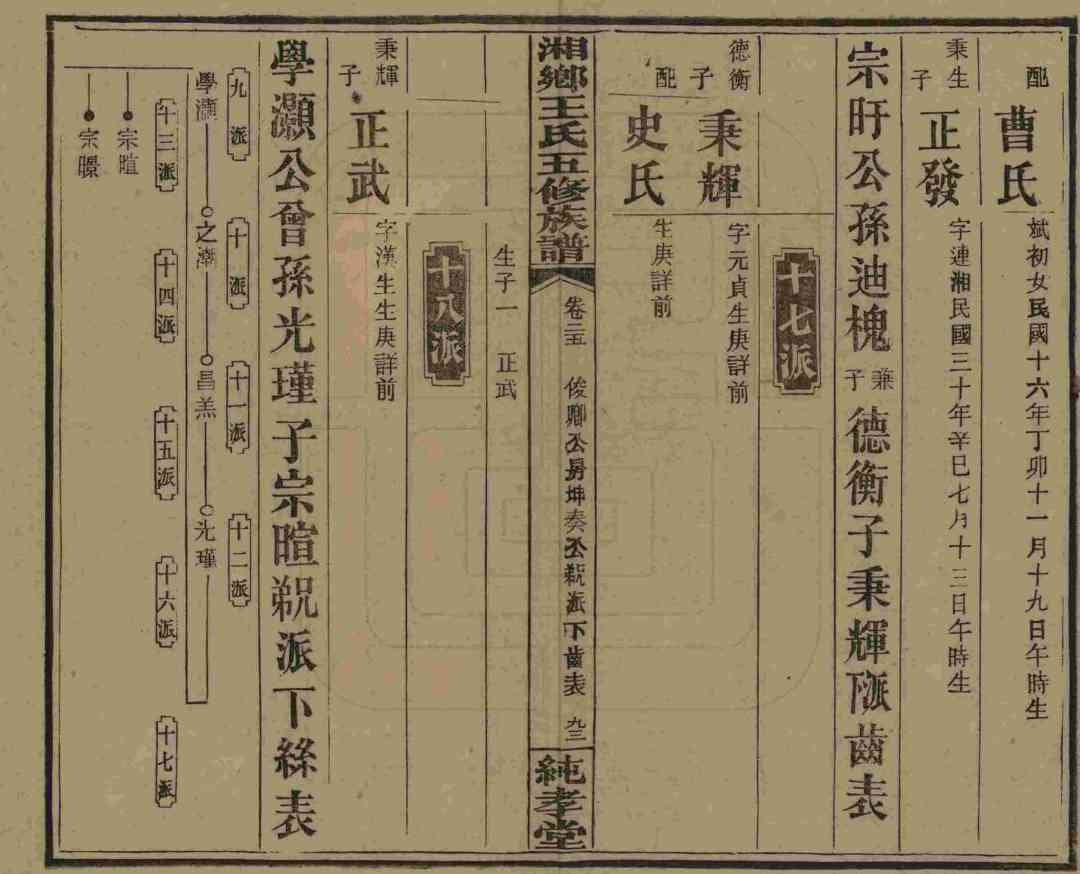 配 曹氏 斌初女民國十六年丁卯十一月十九日午時生
秉生子 正發 字連湘民國三十年辛巳七月十三日午時生
宗旴公孫迪槐兼子德衡子秉輝派齒表
十七派
德衡子 秉輝 字元貞生庚詳前
配 史氏 生庚詳前
湘鄉王氏五修族譜 卷二五 俊卿公房坤奏公派下齒表 九三 純孝堂
生子一 正武
十八派
秉輝子 正武 字漢生生庚詳前
學灝公曾孫光瑾子宗暄派下絲表
九派 十派 十一派 十二派
學灝 之 昌羔 光瑾
十三派 十四派 十五派 十六派 十七派
宗暄
宗㬢